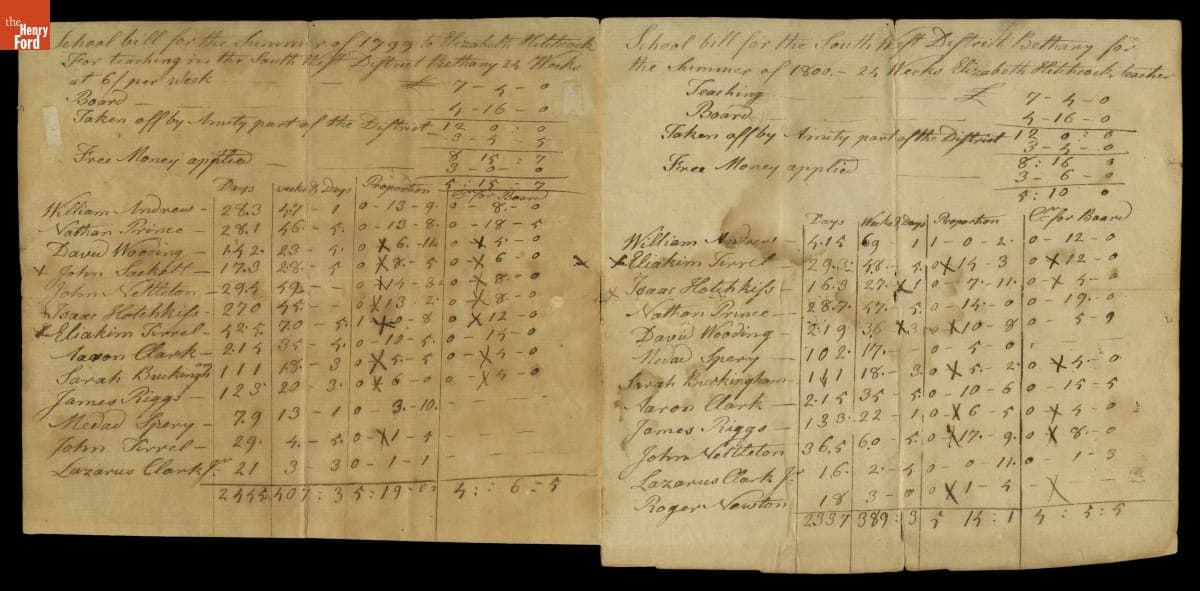 the
Henry
Ford
School bill for the Summer of 1799 to Elizabeth Hitchcock
For teaching in the South West District Bethany 24 Weeks
at 6/ per week £ 7-4-0
Board 4-16-0
Taken off by Amity part of the District 12 0:0
3-4-5
8 15:7
Free Money applied 3-0-0
5:15:7
Days weeks & Days Proportion Cr. for Board
William Andrews 283 47-1 0-13-9 0-8-0
Nathan Prince 281 46-5 0-13-8 0-18-5
David Wooding 142 23-4 0 X 6-11 0 X 4-0
x John Sackett 173 28-5 0 X 8-5 0 X 6 0
John Nettleton 294 49 0 X 14-3 0 X 8-0
Isaac Hotchkiss 270 45 0 X 13 2 0 X 8-0
x Eliakim Tirrel 425 70-5 1 X 0-8 0 X 12-0
Aaron Clark 214 35-4 0-10-5 0-15-0
Sarah Buckingham 111 18-3 0 X 5-5 0 X 4-0
James Riggs 123 20-3 0 X 6-0 0 X 4-0
Medad Spery 79 13-1 0-3-10
John Tirrel 29 4-5 0 X 1-5
Lazarus Clark Jr. 21 3-3 0-1-1
2445 407:3 5:19-0 4:6:5
School bill for the South West District Bethany for
the Summer of 1800.- 24 Weeks Elizabeth Hitchcock teacher
Teaching £ 7-4-0
Board 4-16-0
Taken off by Amity part of the District 12 0:0
3-4-0
8:16 0
Free Money applied 3-6-0
5:10 0
Days Weeks & Days Proportion Cr. for Board
William Andrews 415 69 1 1-0-2 0-12-0
x Eliakim Tirrel 293 48-5 0 X 14-3 0 X 12-0
x Isaac Hotchkiss 163 27 X 1 0-7-11 0 X 4-0
Nathan Prince 287 47-5 0-14-0 0-19-0
David Wooding 219 36 X 3 0 X 10-8 0-5-9
Medad Spery 102 17 0-5-0
Sarah Burkingham 111 18-3 0 X 5-2 0 X 4-0
Aaron Clark 215 35-5 0-10-6 0-15-5
James Riggs 133 22-1 0 X 6-5 0 X 4-0
John Nettleton 365 60-5 0 X 17-9 0 X 8-0
Lazarus Clark Jr 16 2-4 0-0-11 0-1-3
Roger Newton 18 3-0 0 X 1-4 X
2337 389:3 5 14:1 4:5:5